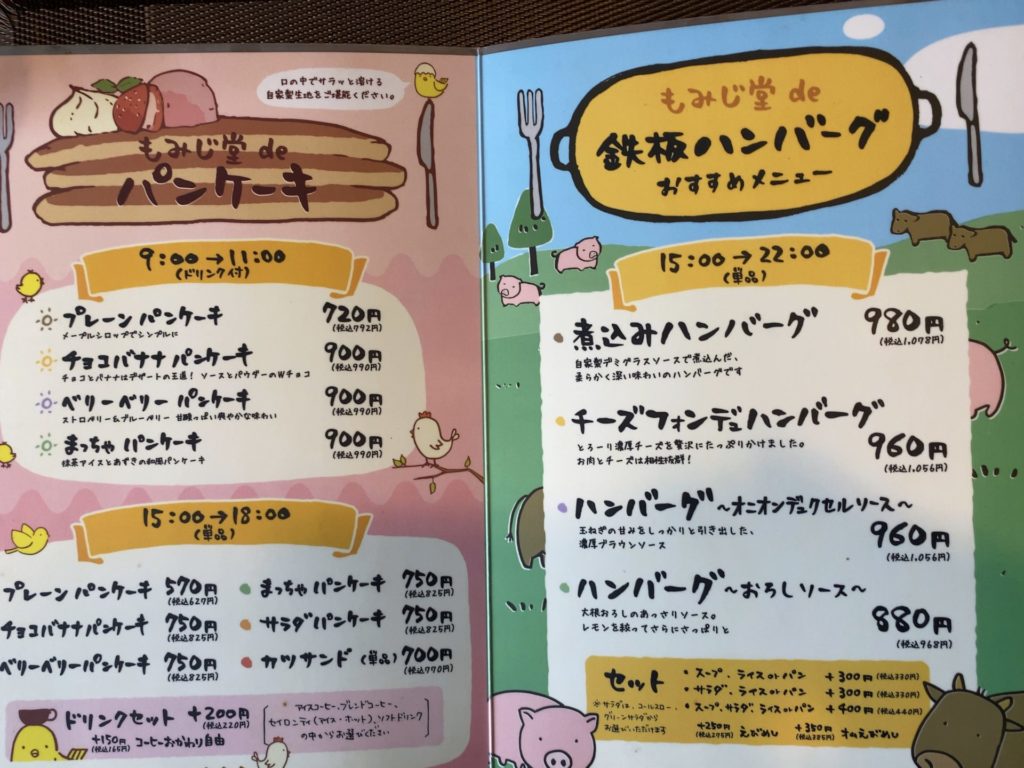 口の中でサラッと溶ける
自家製生地をご堪能ください。
もみじ堂 de
パンケーキ
9:00→11:00
(ドリンク付)
プレーン パンケーキ 720円
メープルシロップでシンプルに (税込792円)
チョコバナナ パンケーキ 900円
チョコとバナナはデザートの王道! ソースとパウダーのWチョコ (税込990円)
ベリーベリー パンケーキ 900円
ストロベリー&ブルーベリー 甘酸っぱい爽やかな味わい (税込990円)
まっちゃ パンケーキ 900円
抹茶アイスとあずきの和風パンケーキ (税込990円)
15:00→18:00
(単品)
プレーン パンケーキ 570円
(税込627円)
チョコバナナパンケーキ 750円
(税込825円)
ベリーベリーパンケーキ 750円
(税込825円)
まっちゃ パンケーキ 750円
(税込825円)
サラダ パンケーキ 750円
(税込825円)
カツサンド (単品) 700円
(税込770円)
ドリンクセット +200円
(税込220円)
+150円 コーヒーおかわり自由
(税込165円)
* アイスコーヒー、ブレンドコーヒー、
セイロンティ(アイス・ホット)、ソフトドリンク
の中からお選びください
もみじ堂 de
鉄板ハンバーグ
おすすめメニュー
15:00→22:00
(単品)
煮込みハンバーグ 980円
(税込1,078円)
自家製デミグラスソースで煮込んだ、
柔らかく深い味わいのハンバーグです
チーズフォンデュハンバーグ
とろーり濃厚チーズを贅沢にたっぷりかけました。
お肉とチーズは相性抜群!
960円
(税込1,056円)
ハンバーグ ～オニオンデュクセルソース～
玉ねぎの甘みをしっかりと引き出した、
濃厚ブラウンソース
960円
(税込1,056円)
ハンバーグ ～おろしソース～
大根おろしのあっさりソース。
レモンを絞ってさらにさっぱりと
880円
(税込968円)
セット
・スープ、ライス or パン +300円 (税込330円)
・サラダ、ライス or パン +300円 (税込330円)
・スープ、サラダ、ライス or パン +400円 (税込440円)
※サラダは、コールスロー、
グリーンサラダから
お選びいただけます
+250円 えびめし
(税込275円)
+350円 オムえびめし
(税込385円)